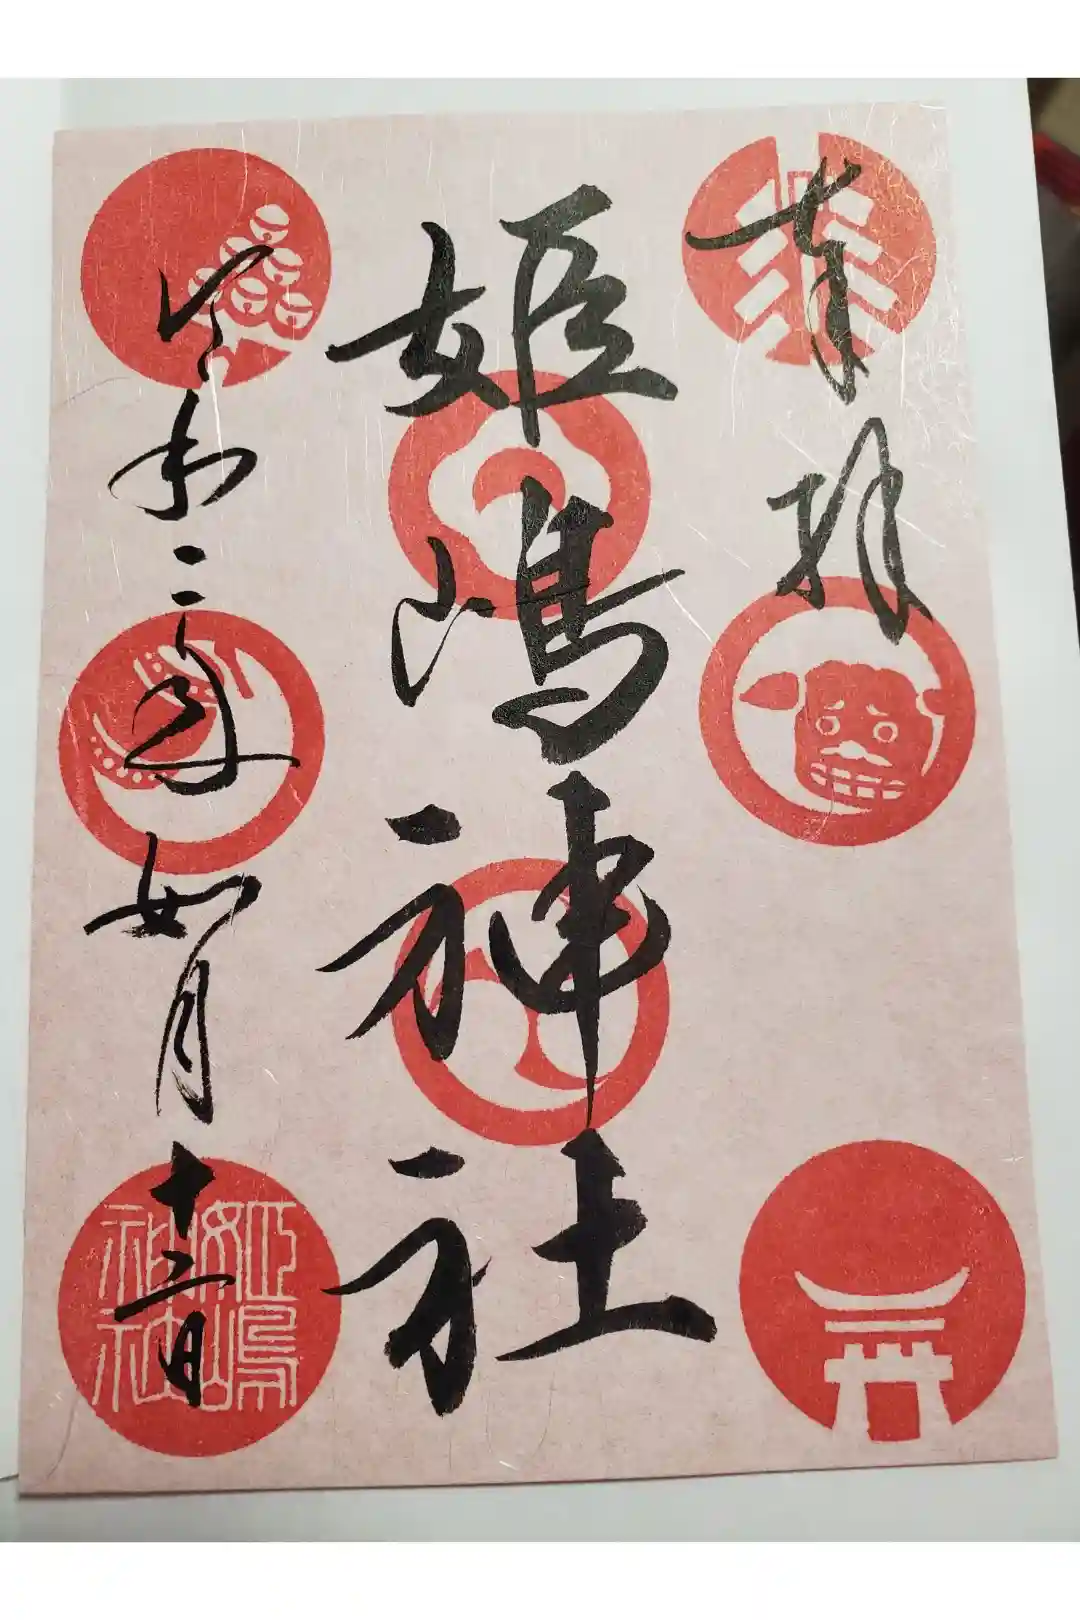 奉拝
姫嶋神社
令和二年如月十三日
姫嶋
神社